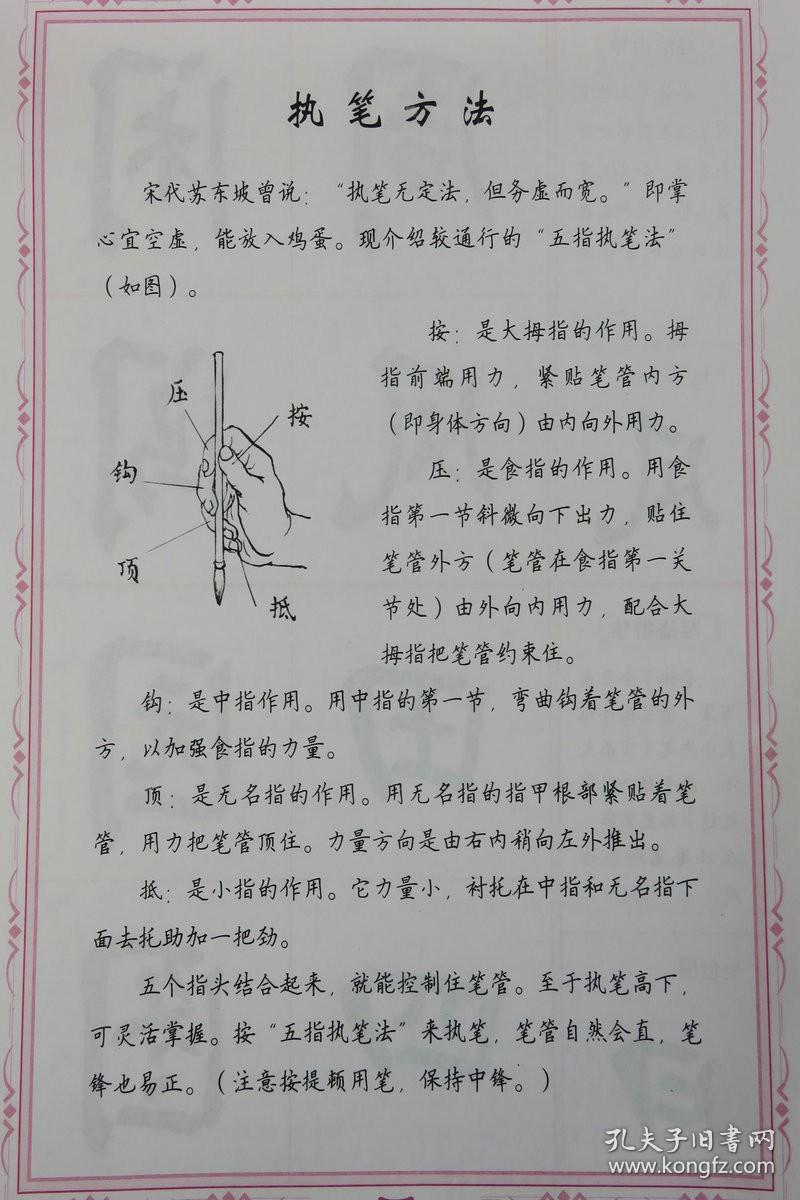 执笔方法
宋代苏东坡曾说：“执笔无定法，但务虚而宽。”即掌
心宜空虚，能放入鸡蛋。现介绍较通行的“五指执笔法”
（如图）。
按：是大拇指的作用。拇
指前端用力，紧贴笔管内方
（即身体方向）由内向外用力。
压：是食指的作用。用食
指第一节斜微向下出力，贴住
笔管外方（笔管在食指第一关
节处）由外向内用力，配合大
拇指把笔管约束住。
压
按
钩
顶
抵
钩：是中指作用。用中指的第一节，弯曲钩着笔管的外
方，以加强食指的力量。
顶：是无名指的作用。用无名指的指甲根部紧贴着笔
管，用力把笔管顶住。力量方向是由右内稍向左外推出。
抵：是小指的作用。它力量小，衬托在中指和无名指下
面去托助加一把劲。
五个指头结合起来，就能控制住笔管。至于执笔高下，
可灵活掌握。按“五指执笔法”来执笔，笔管自然会直，笔
锋也易正。（注意按提顿用笔，保持中锋。）
孔夫子旧书网
www.kongfz.com